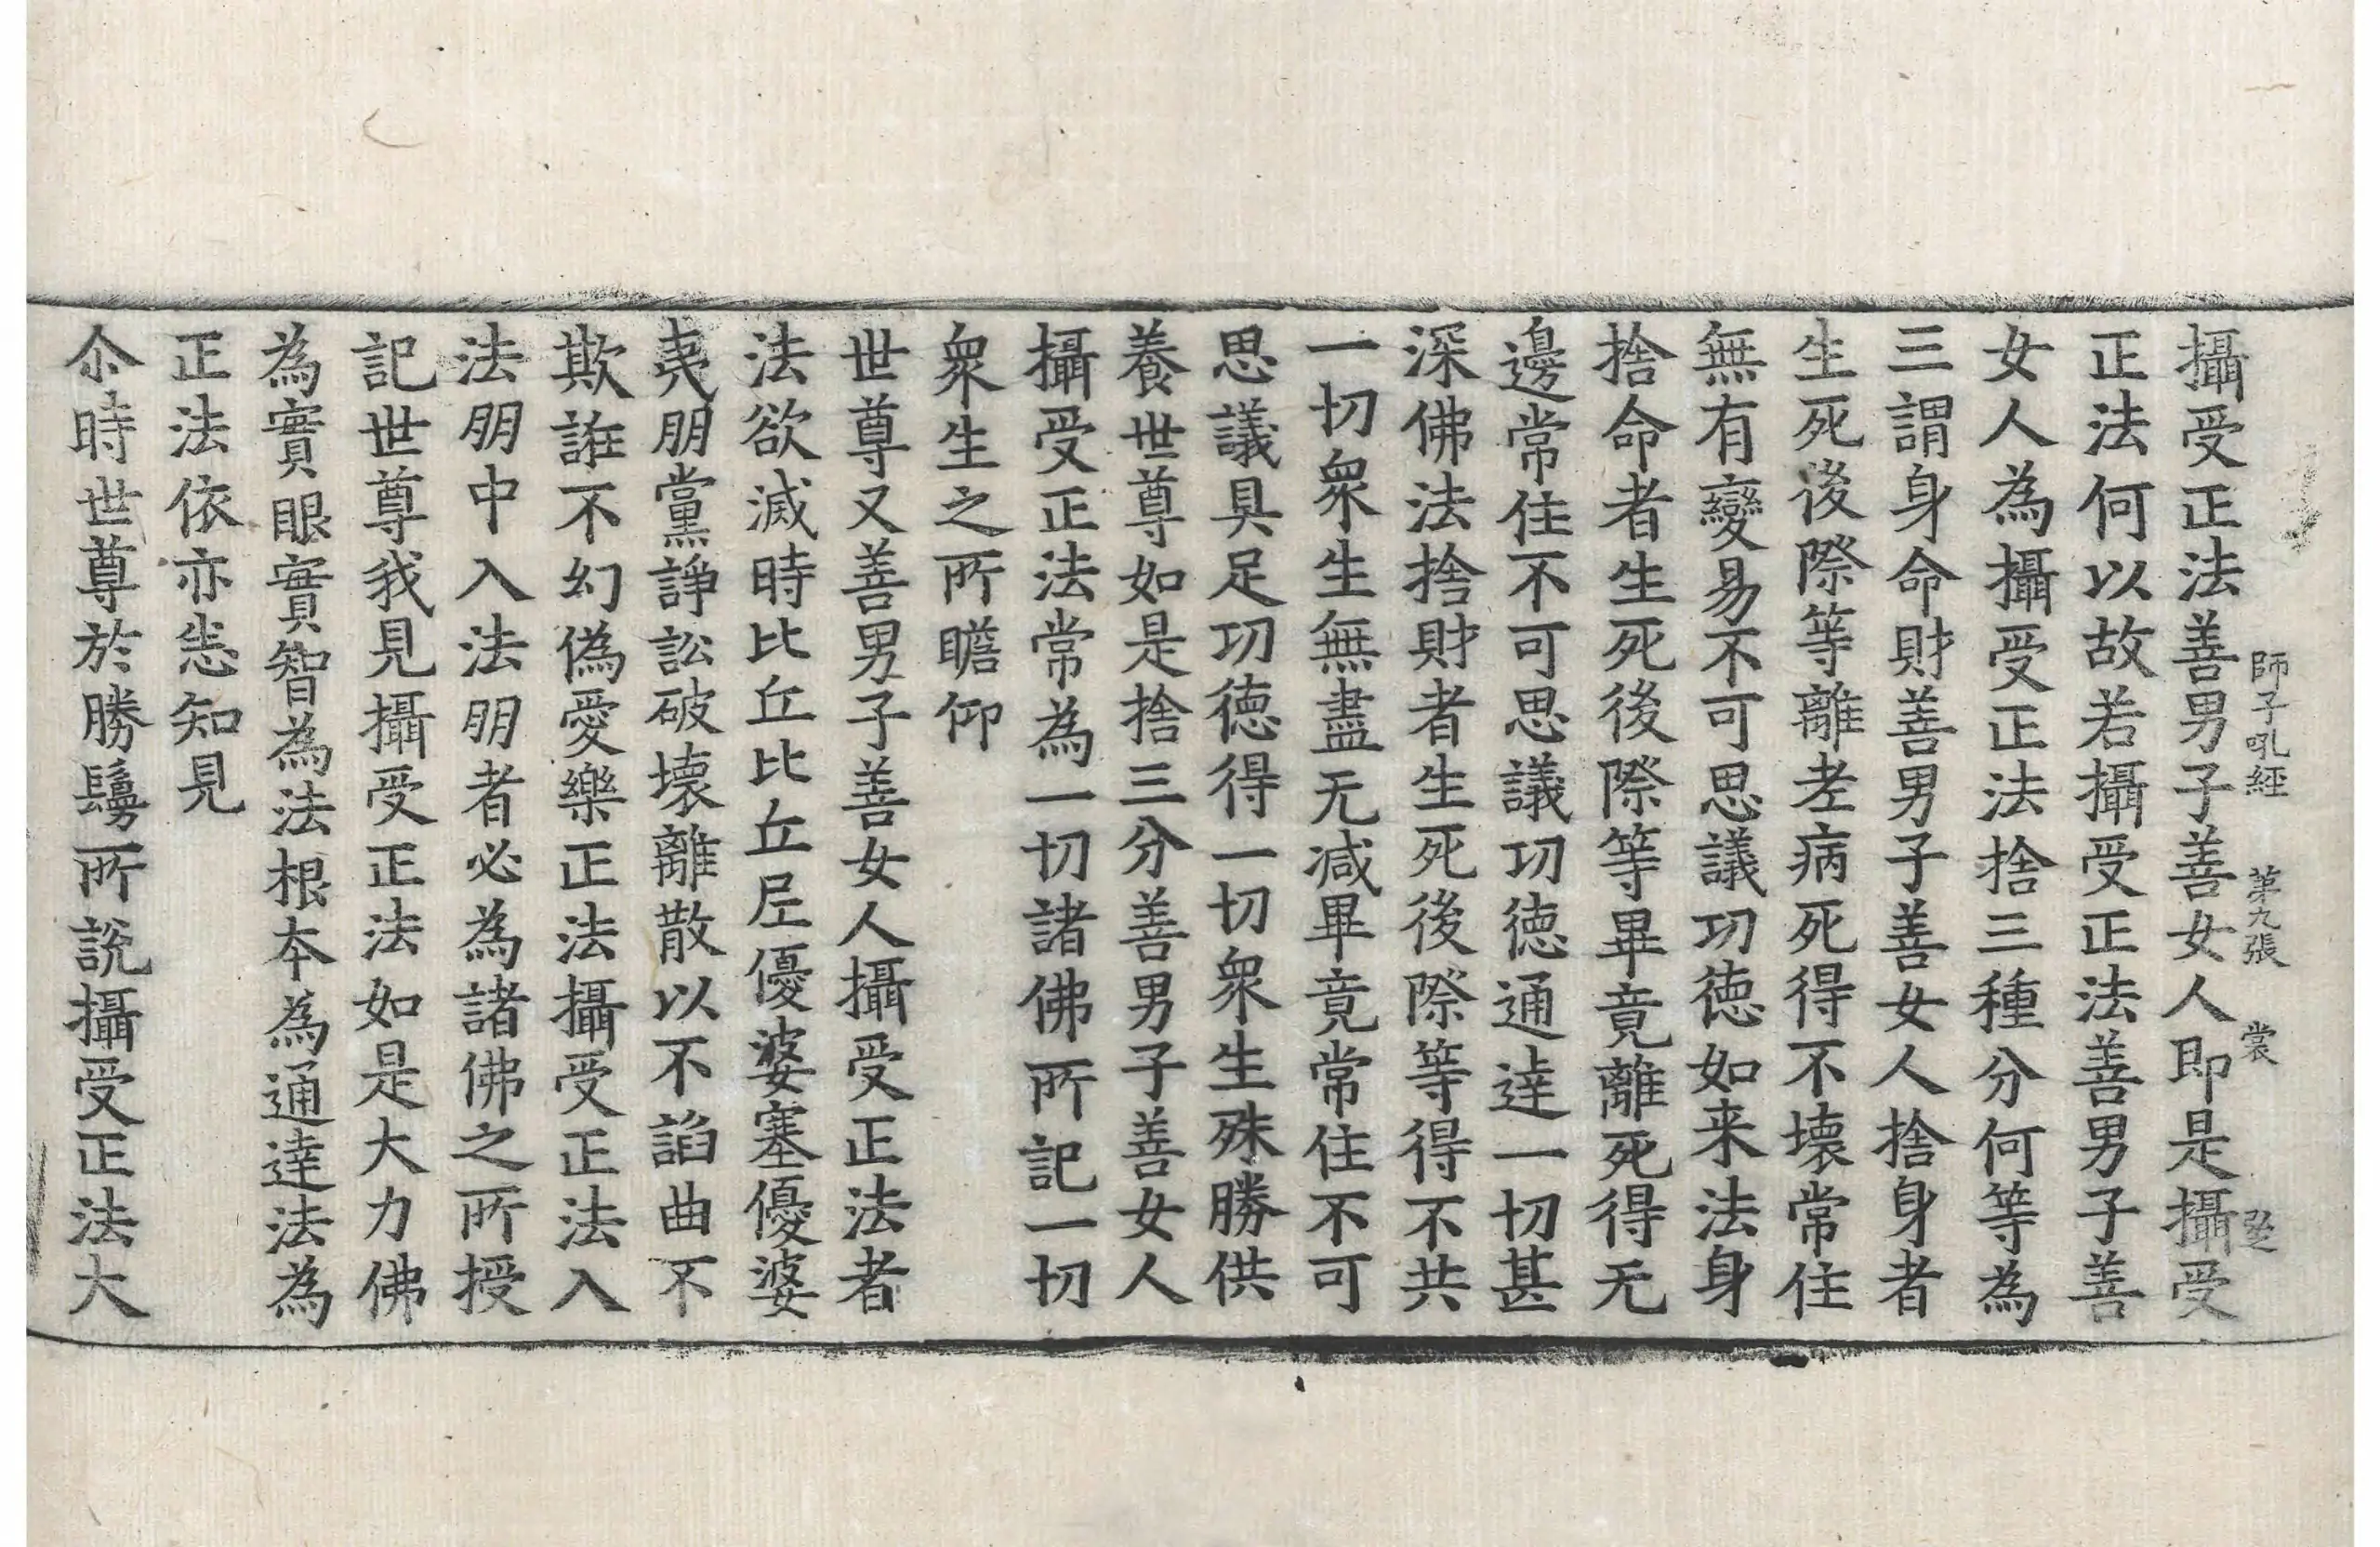 師子吼經 第九張 裳
攝受正法善男子善女人即是攝受
正法何以故若攝受正法善男子善
女人為攝受正法捨三種分何等為
三謂身命財善男子善女人捨身者
生死後際等離老病死得不壞常住
無有變易不可思議功德如来法身
捨命者生死後際等畢竟離死得无
邊常住不可思議功德通達一切甚
深佛法捨財者生死後際等得不共
一切衆生無盡无减畢竟常住不可
思議具足功德得一切衆生殊勝供
養世尊如是捨三分善男子善女人
攝受正法常為一切諸佛所記一切
衆生之所瞻仰
世尊又善男子善女人攝受正法者
法欲滅時比丘比丘尼優婆塞優婆
夷朋黨諍訟破壊離散以不諂曲不
欺誑不幻偽愛樂正法攝受正法入
法朋中入法朋者必為諸佛之所授
記世尊我見攝受正法如是大力佛
為實眼實智為法根本為通達法為
正法依亦悉知見
尒時世尊於勝鬘所說攝受正法大